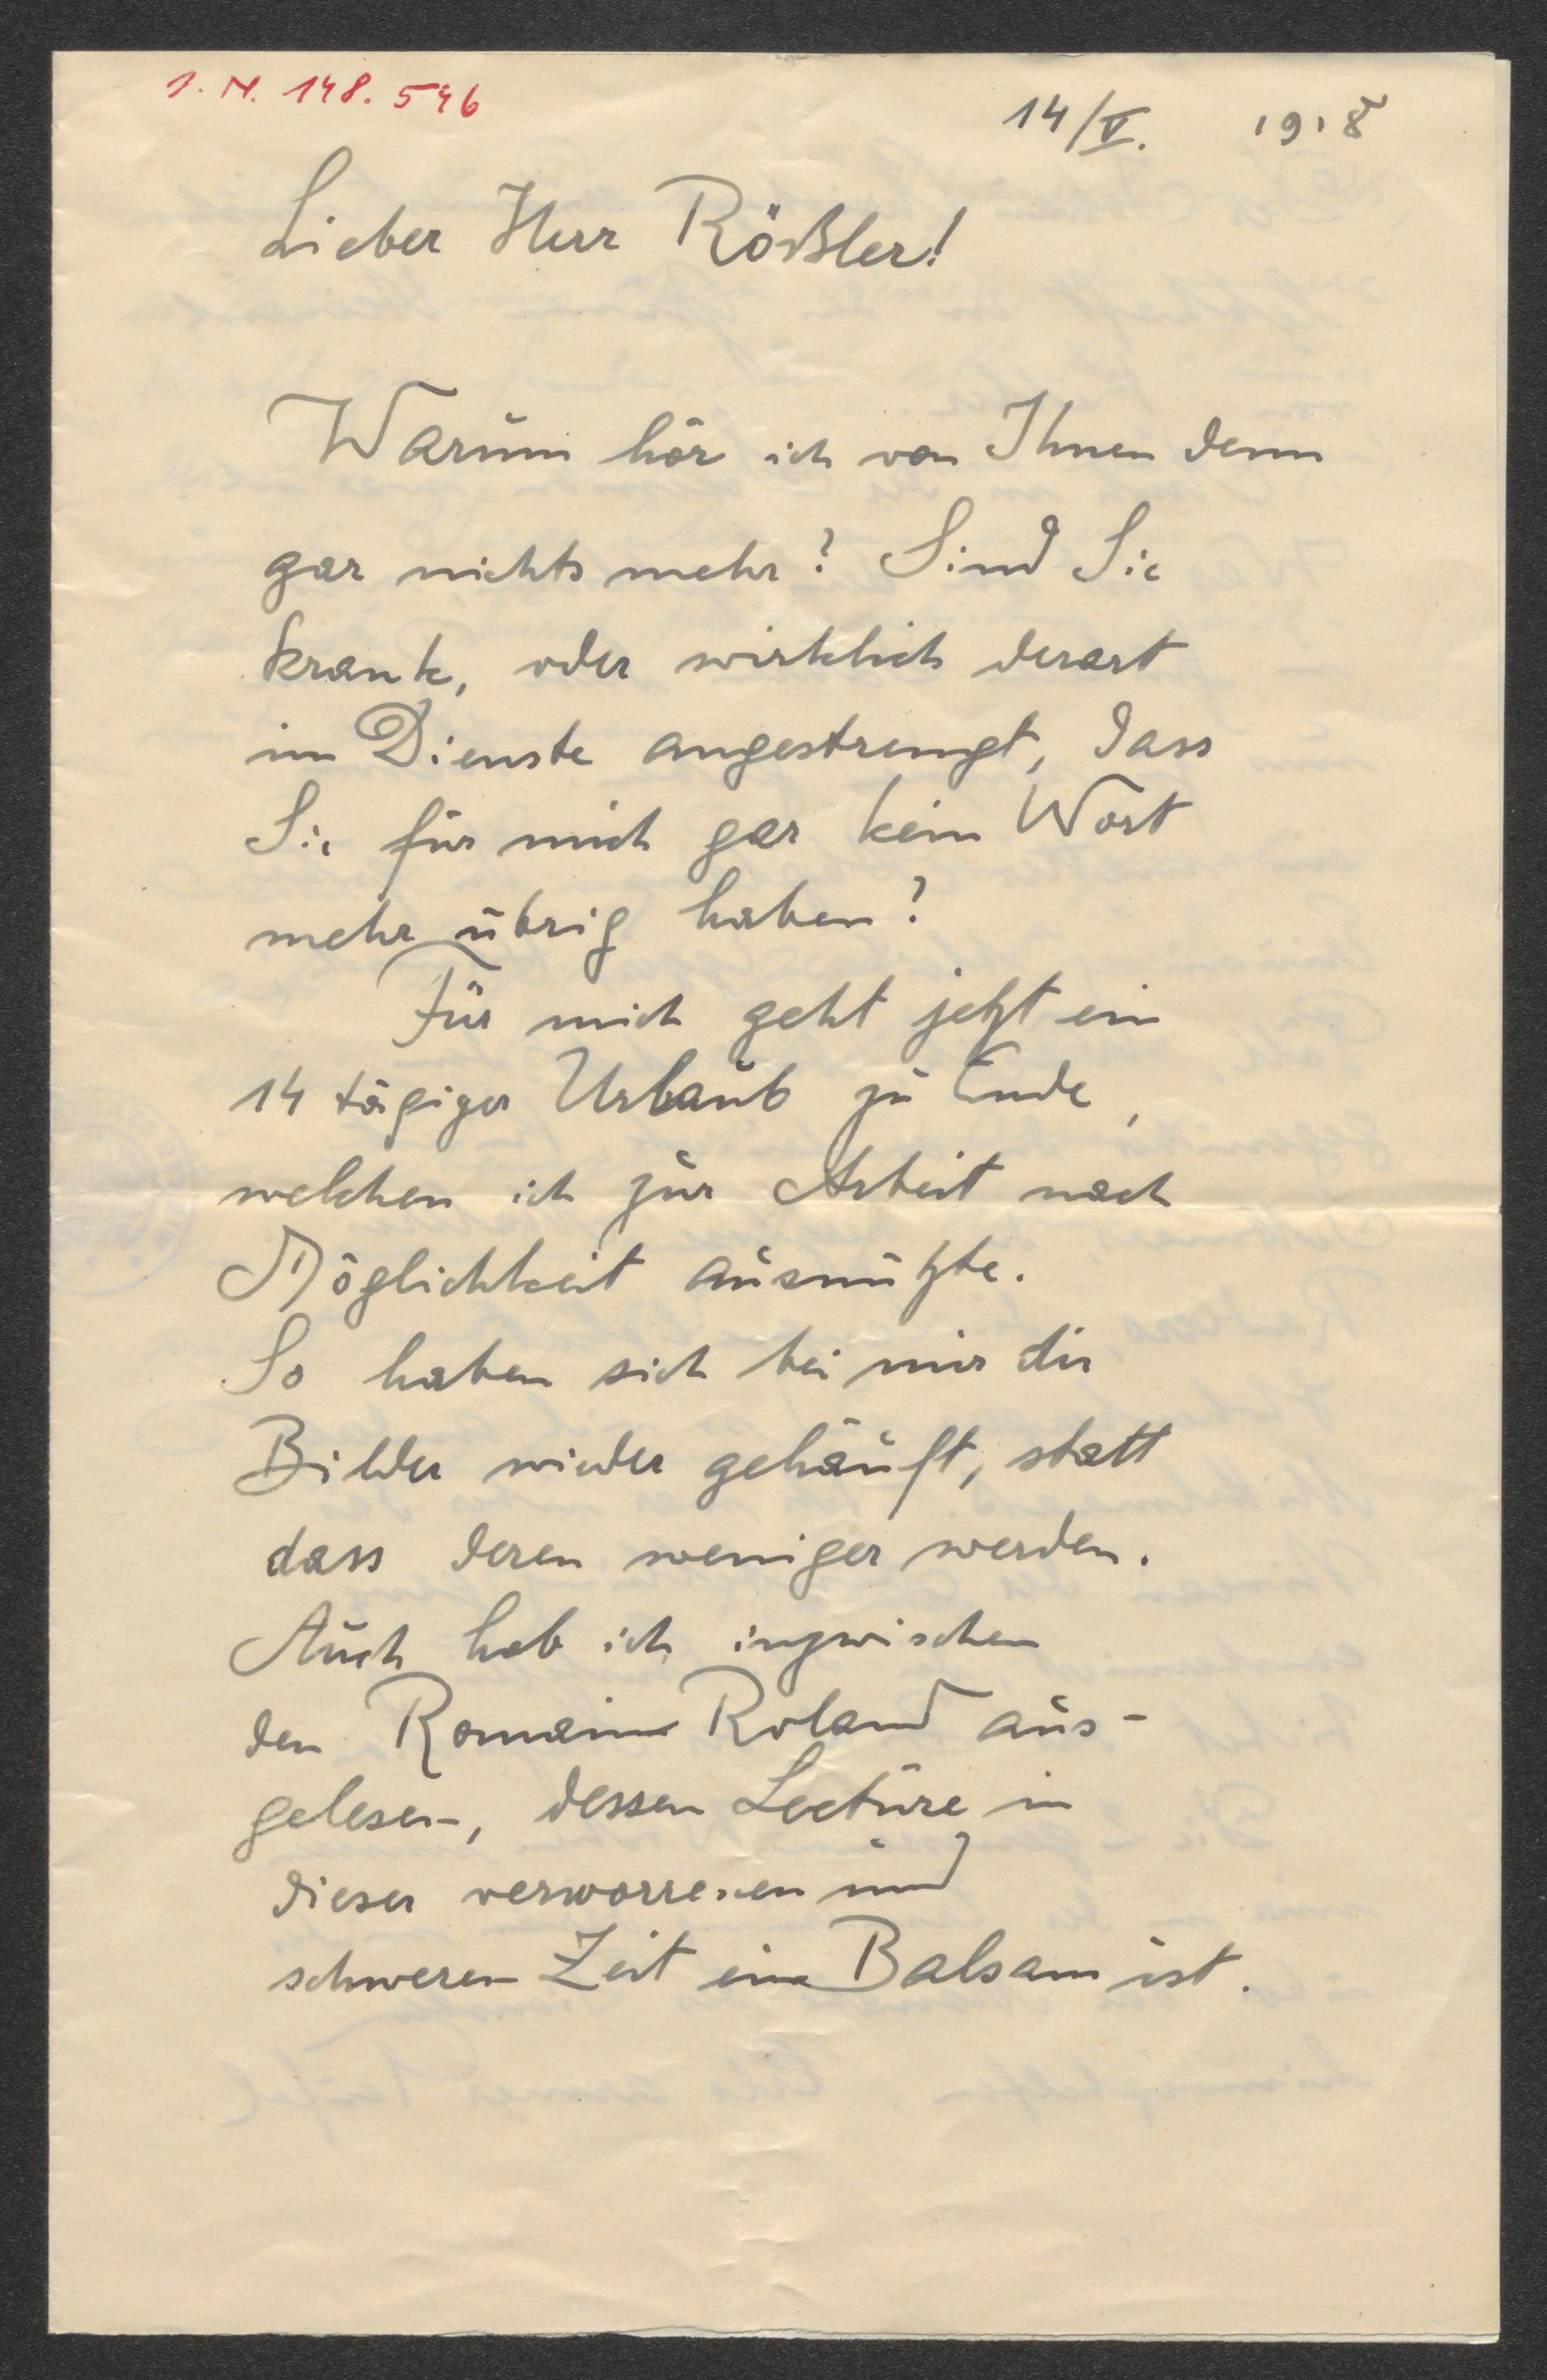 J. N. 148.546
14/V. 1918
Lieber Herr Rößler!
Warum hör ich von Ihnen denn
gar nichts mehr? Sind Sie
krank, oder wirklich derart
im Dienste angestrengt, dass
Sie für mich gar kein Wort
mehr übrig haben?
Für mich geht jetzt ein
14 tägiger Urlaub zu Ende,
welchen ich zur Arbeit nach
Möglichkeit ausnützte.
So haben sich bei mir die
Bilder wieder gehäuft, statt
dass deren weniger werden.
Auch hab ich inzwischen
den Romain Roland aus-
gelesen, dessen Lectüre in
dieser verworrenen und
schweren Zeit ein Balsam ist.